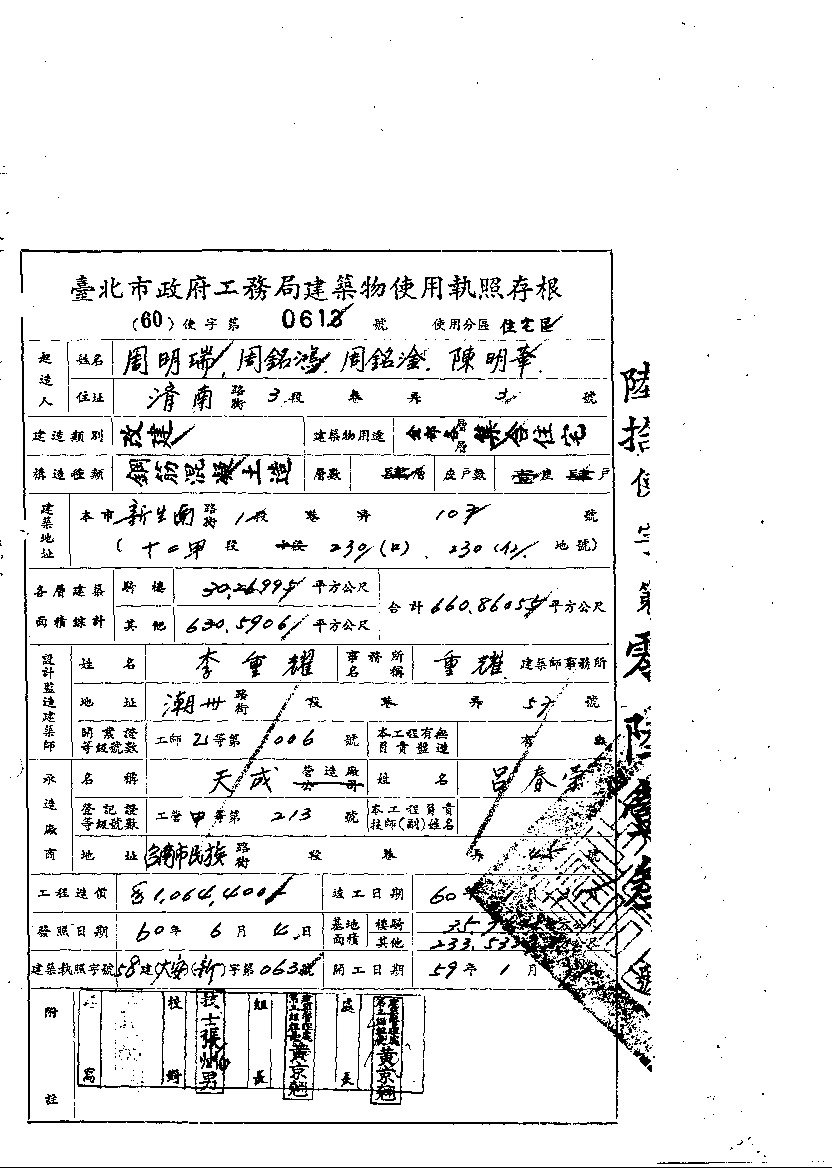 臺北市政府工務局建築物使用執照存根
(60)使字第 0613 號 使用分區 住宅區
起造人 姓名 周明瑞.周銘鴻.周銘淦.陳明華.
住址 濟南 路街 3 段 巷 弄 3 號
建造類別 改建 建築物用途 集合住宅
構造種類 鋼筋混凝土造 層數 層 座戶數 座 戶
建築地址 本市 新生南 路街 1 段 巷 弄 107 號
段 230 230 地號)
各層建築面積總計 騎樓 30.26995 平方公尺 合計 660.86055 平方公尺
其他 630.5906 平方公尺
設計監造建築師 姓名 李重耀 事務所名稱 重耀 建築師事務所
地址 潮州 路街 段 巷 弄 57 號
開業證等級號數 工師 等第 006 號 本工程有無負責監造
承造廠商 名稱 天成 營造廠公司 姓名 呂春
登記證等級號數 工營 甲 等第 213 號 本工程負責技師(副)姓名
地址 台南市民族 路街 段 巷 弄 號
工程造價 1,064,400 竣工日期 60 年 月
發照日期 60 年 6 月 4 日 基地面積 騎樓 35.
其他 233.53
建築執照字號 58 建(大安)(新)字第 063 號 開工日期 59 年 1 月
附註 技士張 男 組長 黃京 處長 黃京
陸拾使字第零陸壹